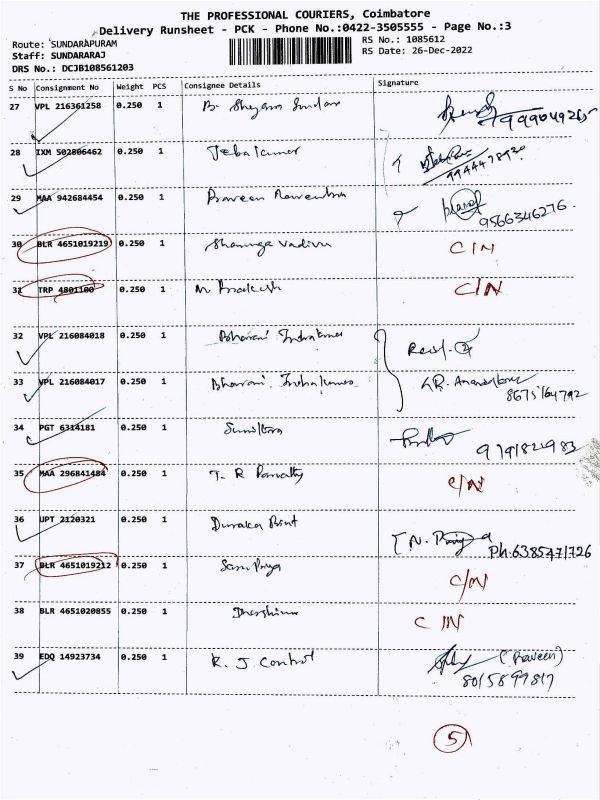 THE PROFESSIONAL COURIERS, Coimbatore
Delivery Runsheet - PCK - Phone No.:0422-3505555 - Page No.:3
Route: SUNDARAPURAM RS No.: 1085612
Staff: SUNDARARAJ RS Date: 26-Dec-2022
DRS No.: DCJB108561203
S No Consignment No Weight PCS Consignee Details Signature
27 VPL 216361258 0.250 1 B. Shyam Sundar
28 IXM 502806462 0.250 1 Jeba kumar
9944478920
29 MAA 942684454 0.250 1 Praveen
9566346276.
30 BLR 4651019219 0.250 1 Shanmuga Vadivu C/N
31 TRP 4801100 0.250 1 M Prakash C/N
32 VPL 216084018 0.250 1 Bhavani Indrakumar Recd. 2
33 VPL 216084017 0.250 1 Bhavani Indrakumar
8675164792
34 PGT 6314181 0.250 1
9791821983
35 MAA 296841484 0.250 1 T. R C/N
36 UPT 2120321 0.250 1 Dwaraka Print N.
Ph:6385471726
37 BLR 4651019212 0.250 1 C/N
38 BLR 4651020855 0.250 1 Dharshini C/N
39 EDQ 14923734 0.250 1 R. J Control (Praveen)
8015899817
5